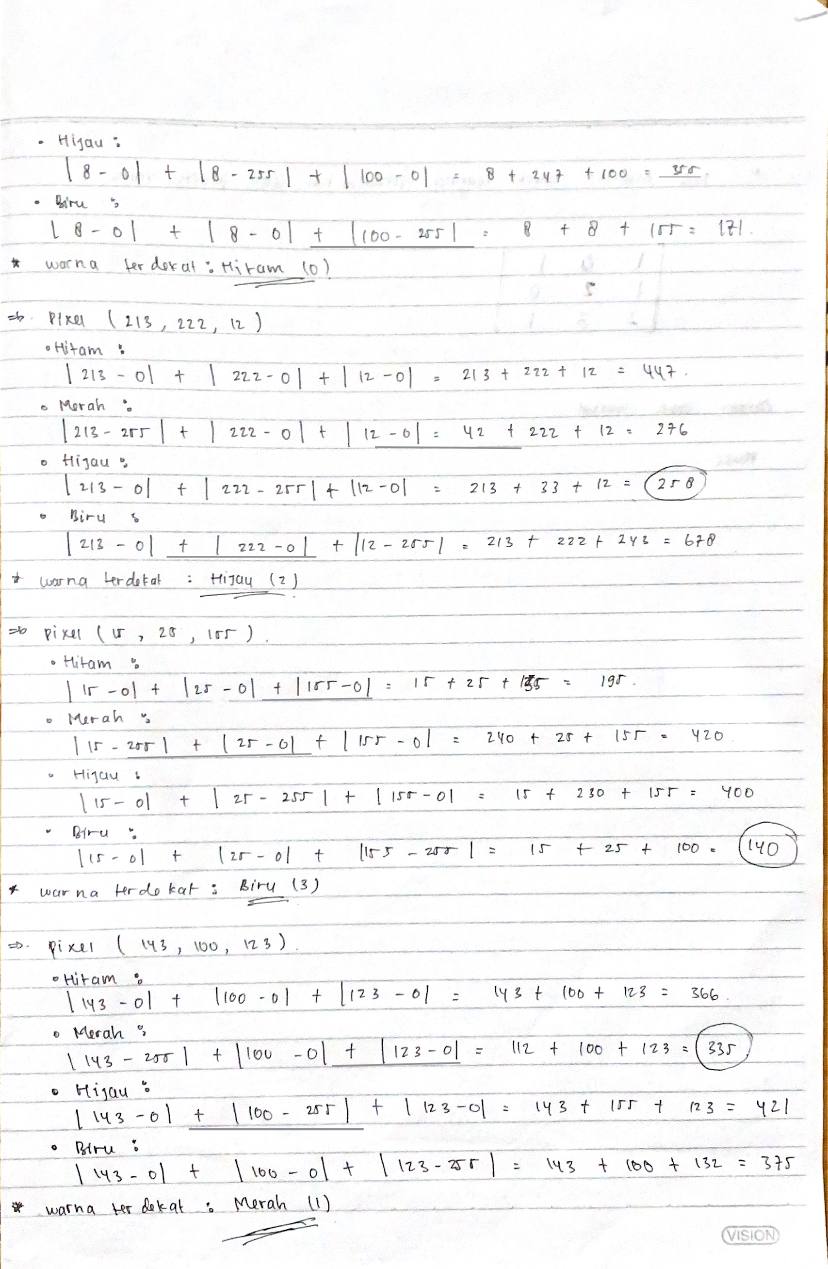 • Hijau :
|8 - 0| + |8 - 255| + |100 - 0| = 8 + 247 + 100 = 355.
• Biru :
|8 - 0| + |8 - 0| + |100 - 255| = 8 + 8 + 155 = 171.
* warna terdekat : Hitam (0)
=> Pixel (213, 222, 12)
• Hitam :
|213 - 0| + |222 - 0| + |12 - 0| = 213 + 222 + 12 = 447.
• Merah :
|213 - 255| + |222 - 0| + |12 - 0| = 42 + 222 + 12 = 276
• Hijau :
|213 - 0| + |222 - 255| + |12 - 0| = 213 + 33 + 12 = 258
• Biru :
|213 - 0| + |222 - 0| + |12 - 255| = 213 + 222 + 243 = 678
* warna terdekat : Hijau (2)
=> pixel (15, 25, 155).
• Hitam :
|15 - 0| + |25 - 0| + |155 - 0| = 15 + 25 + 155 = 195.
• Merah :
|15 - 255| + |25 - 0| + |155 - 0| = 240 + 25 + 155 = 420
• Hijau :
|15 - 0| + |25 - 255| + |155 - 0| = 15 + 230 + 155 = 400
• Biru :
|15 - 0| + |25 - 0| + |155 - 255| = 15 + 25 + 100 = 140
* warna terdekat : Biru (3)
=> pixel (143, 100, 123).
• Hitam :
|143 - 0| + |100 - 0| + |123 - 0| = 143 + 100 + 123 = 366.
• Merah :
|143 - 255| + |100 - 0| + |123 - 0| = 112 + 100 + 123 = 335
• Hijau :
|143 - 0| + |100 - 255| + |123 - 0| = 143 + 155 + 123 = 421
• Biru :
|143 - 0| + |100 - 0| + |123 - 255| = 143 + 100 + 132 = 375
* warna terdekat : Merah (1)
VISION